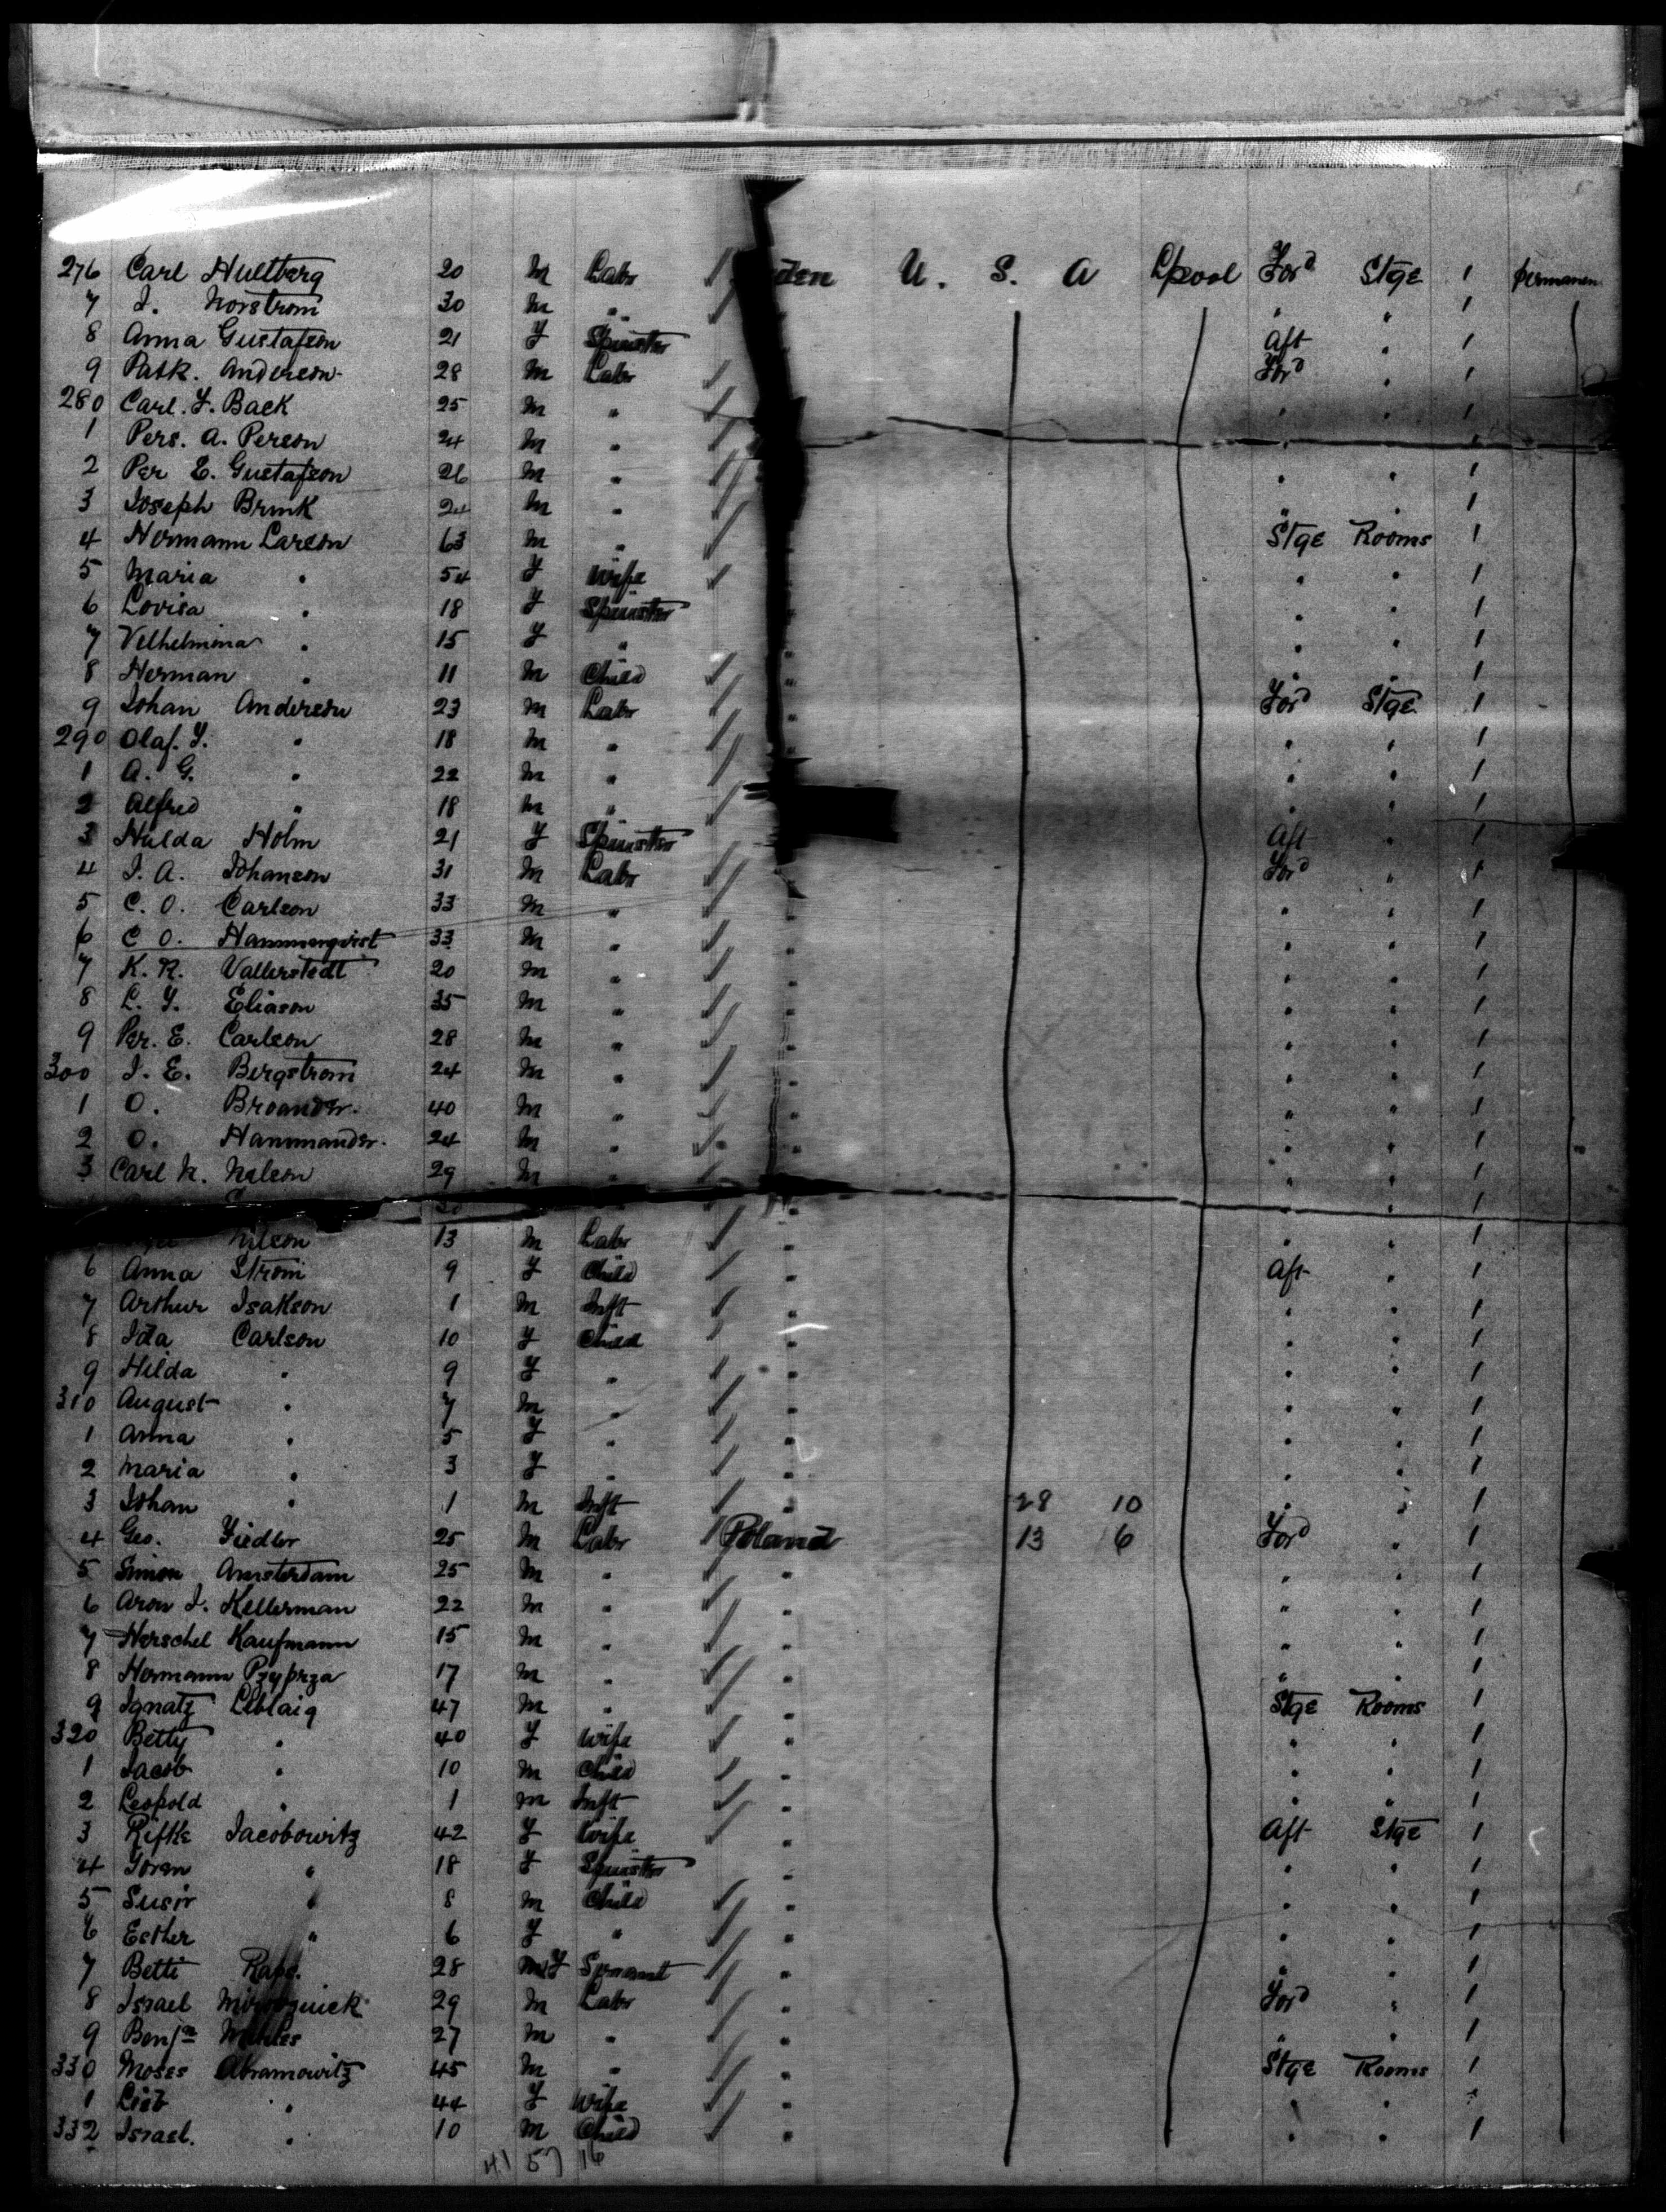 276 Carl Hultberg 20 M Labr den U. S. A L'pool For'd Stge 1 permanen
7 J. Norstrom 30 M " " " 1
8 Anna Gustafson 21 F Spinster Aft " 1
9 Patk. Anderson 28 M Labr For'd " 1
280 Carl. F. Back 25 M " " " 1
1 Pers. A. Person 24 M " "
2 Per E. Gustafson 26 M " " " 1
3 Joseph Brink 24 M " " " 1
4 Hermann Larson 63 M " Stge Rooms 1
5 Maria " 54 F Wife " " " 1
6 Lovisa " 18 F Spinster " " 1
7 Velhelmina " 15 F " " " " 1
8 Herman " 11 M Child " " " 1
9 Johan Anderson 23 M Labr " For'd Stge 1
290 Olaf. F. " 18 M " " " " 1
1 A. G. " 22 M " " " 1
2 Alfred " 18 M " " " 1
3 Hulda Holm 21 F Spinster Aft " 1
4 J. A. Johanson 31 M Labr For'd " 1
5 C. O. Carlson 33 M " " " " 1
6 C O. Hammerqvist 33 M " " " " 1
7 K. R. Vallerstedt 20 M " " " " 1
8 L. F. Eliason 35 M " " " " 1
9 Per. E. Carlson 28 M " " " " 1
300 J. E. Bergstrom 24 M " " " " 1
1 O. 40 M " " " " 1
2 O. 24 M " " " " 1
3 Carl N. Nelson 29 M " " " 1
" " " 1
Nilson 13 M Labr " " " 1
6 Anna Strom 9 F Child " Aft " 1
7 Arthur Isakson 1 M Inft " " " 1
8 Ida Carlson 10 F Child " " " 1
9 Hilda " 9 F " " " " 1
310 August " 7 M " " " " 1
1 Anna " 5 F " " " " 1
2 Maria " 3 F " " " " 1
3 Johan " 1 M Inft " 28 10 " " 1
4 Geo. Fiedler 25 M Labr Poland 13 6 For'd " 1
5 Simon Amsterdam 25 M " " " " 1
6 Aron J. Kellerman 22 M " " " " 1
7 Herschel Kaufmann 15 M " " " " 1
8 Hermann Pzyprza 17 M " " " " 1
9 Ignatz 47 M " " Stge Rooms 1
320 Betty " 40 F Wife " " " 1
1 Jacob " 10 M Child " " " 1
2 Leopold " 1 M Inft " " " 1
3 Rifke Jacobowitz 42 F Wife " Aft Stge 1
4 " 18 F Spinster " " " 1
5 Susir " 8 M Child " " " 1
6 Esther " 6 F " " " " 1
7 Betti 28 F Servant " " " 1
8 Israel 29 M Labr " For'd " 1
9 Benjn 27 M " " " " 1
330 Moses Abramowitz 45 M " " Stge Rooms 1
1 " 44 F Wife " " "
332 Israel. " 10 M Child " " " 1
41 57 16